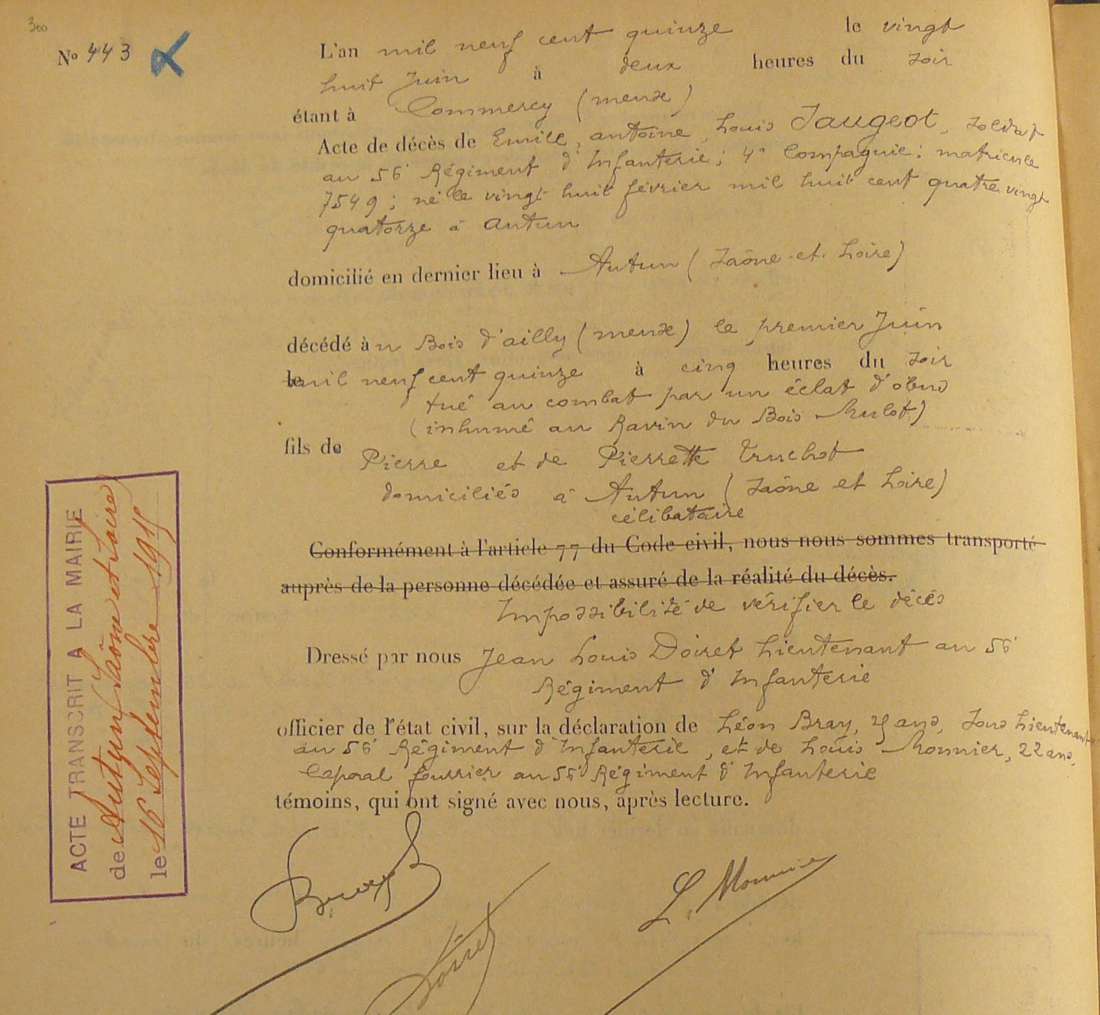 300
No 443
L'an mil neuf cent quinze le vingt
huit Juin à deux heures du soir
étant à Commercy (meuse)
Acte de décès de Emile, antoine, Louis Jaugeot, soldat
au 56e Régiment d'Infanterie; 4e Compagnie; matricule
7549; né le vingt huit février mil huit cent quatre vingt
quatorze à Autun
domicilié en dernier lieu à Autun (Saône et Loire)
décédé au Bois d'ailly (meuse) le premier Juin
le mil neuf cent quinze à cinq heures du soir
tué au combat par un éclat d'obus
(inhumé au Ravin du Bois Mulot)
fils de Pierre et de Pierrette Truchot
domiciliés à Autun (Saône et Loire)
célibataire
Conformément à l'article 77 du Code civil, nous nous sommes transporté
auprès de la personne décédée et assuré de la réalité du décès.
Impossibilité de vérifier le décès
Dressé par nous Jean Louis Doiret Lieutenant au 56e
Régiment d'Infanterie
officier de l'état civil, sur la déclaration de Léon Bray, ans, Sous Lieutenant
au 56e Régiment d'Infanterie, et de Louis Monnier, 22 ans,
Caporal fourrier au 56e Régiment d'Infanterie
témoins, qui ont signé avec nous, après lecture.
Bray
Doiret
L. Monnier
ACTE TRANSCRIT A LA MAIRIE
de Autun Saône et Loire
le 16 Septembre 1915